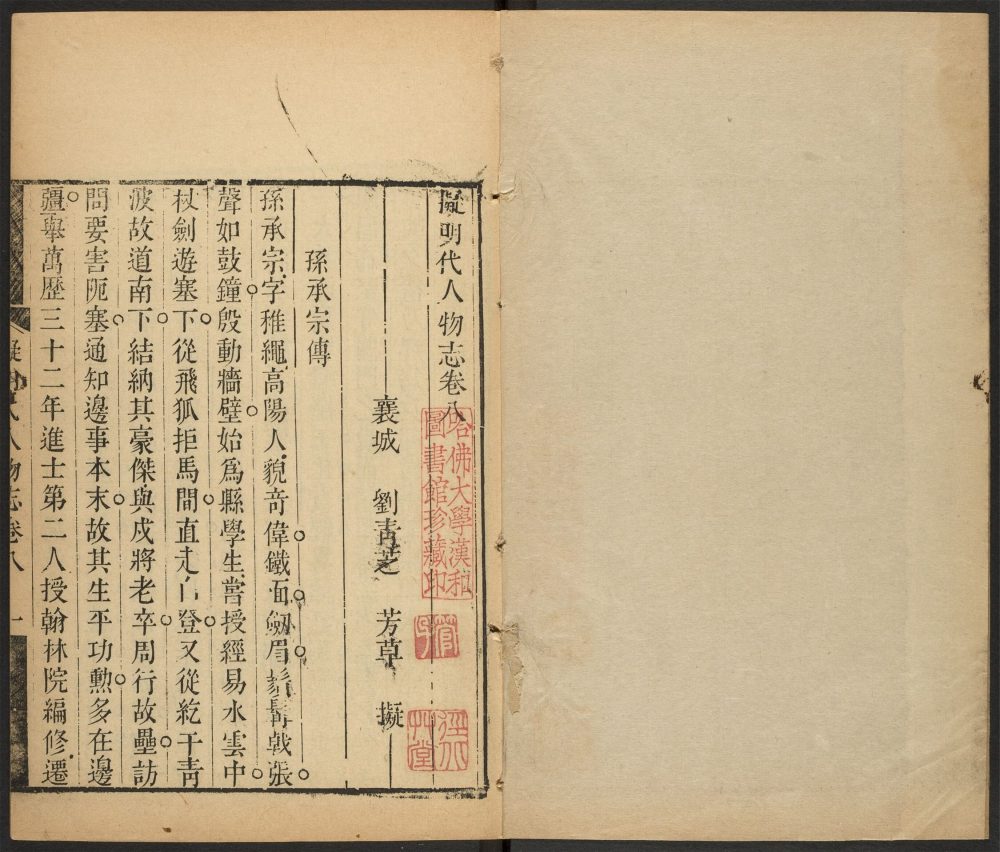 擬明代人物志卷八
襄城 劉青芝 芳草 擬
孫承宗傳
孫承宗字稚繩高陽人貌竒偉鐵面劔眉鬚髯戟張
聲如鼓鐘殷動牆壁始爲縣學生嘗授經易水雲中
杖劍遊塞下從飛狐拒馬間直走白登又從紇干青
波故道南下結納其豪傑與戍將老卒周行故壘訪
問要害阨塞通知邊事本末故其生平功勲多在邊
疆舉萬歷三十二年進士第二人授翰林院編修遷
擬明代人物志卷八 一
哈佛大學漢和
圖書館珍藏印
艸堂